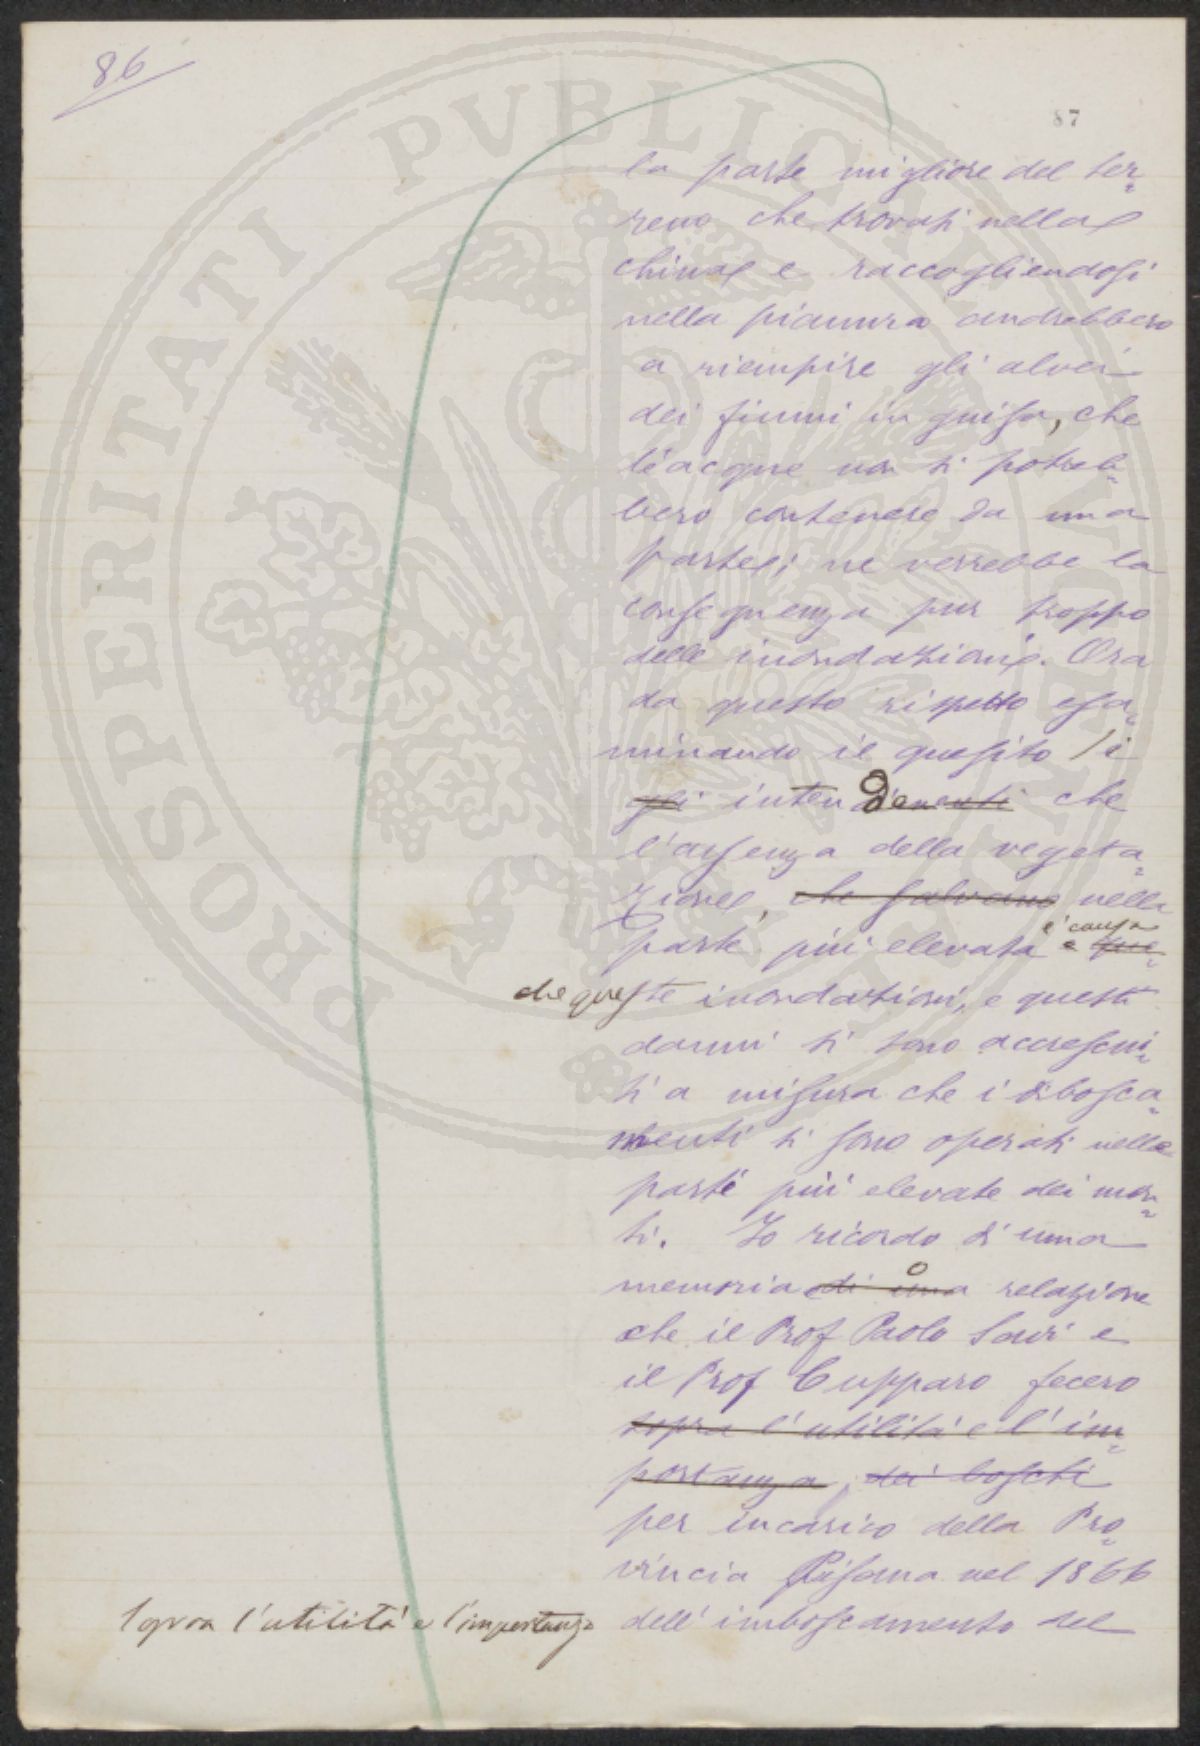 86
87
la parte migliore del ter-
reno che trovasi nella
china e raccogliendosi
nella pianura andrebbero
a riempire gli alvei
dei fiumi in guisa, che
le acque non si potreb-
bero contenere da una
parte; ne verrebbe la
conseguenza pur troppo
delle inondazioni. Ora
da questo rispetto esa-
minando il quesito si
gli intendementi che
l'assenza della vegeta-
zione, che salvano nella
parte più elevata e que-
è causa
che queste inondazioni, e questi
danni si sono accresciu-
ti a misura che i disbosca-
menti si sono operati nelle
parti più elevate dei mon-
ti. Io ricordo di una
memoria di una relazione
o
che il Prof Paolo Savi e
il Prof Cupparo fecero
sopra l'utilità e l'im-
portanza, dei boschi
per incarico della Pro-
vincia Pisana nel 1866
sopra l'utilità e l'importanza dell'imboscamento del